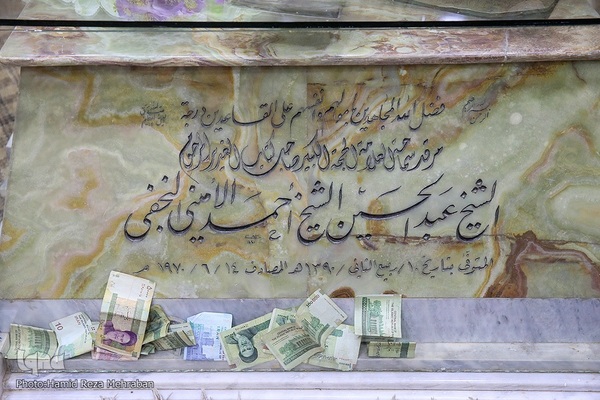 فضل الله المجاهدين بأموالهم وأنفسهم على القاعدين درجة
مرقد سماحة العلامة الحجة الكبير صاحب كتاب الغدير المرحوم
الشيخ عبد الحسين الشيخ أحمد الأميني النجفي
المتوفى بتاريخ ١٠/ ربيع الثاني/ ١٣٩٠هـ المصادف ١٤/ ٦/ ١٩٧٠ م
10
Photo:Hamid Reza Mehraban